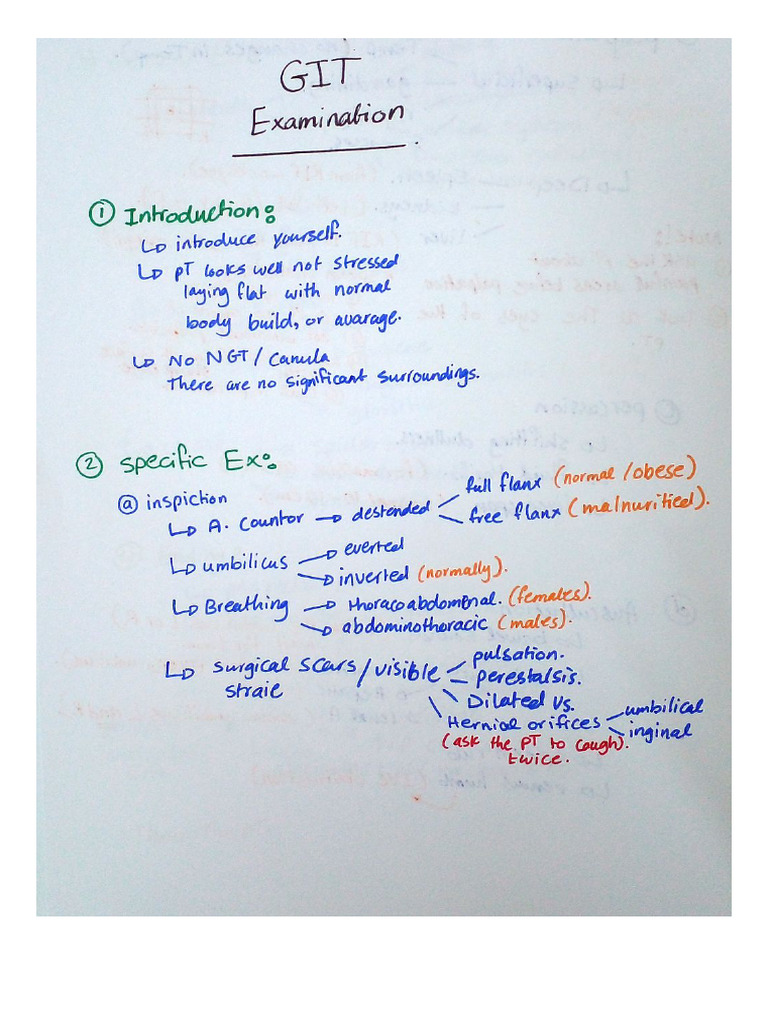 GIT
Examination
① Introduction:
↳ introduce yourself.
↳ PT looks well not stressed
laying flat with normal
body build, or avarage.
↳ No NGT / Canula
There are no significant surroundings.
② specific Ex:
ⓐ inspiction
↳ A. Countor → destended
full flanx (normal / obese)
free flanx (malnuritied).
↳ umbilicus
→ everted
→ inverted (normally).
↳ Breathing
→ thoracoabdomenal. (females).
→ abdominothoracic (males).
↳ surgical scars / visible
straie
pulsation.
perestalsis.
Dilated Vs.
Hernial orifices
umbilical
inginal
(ask the PT to cough).
twice.